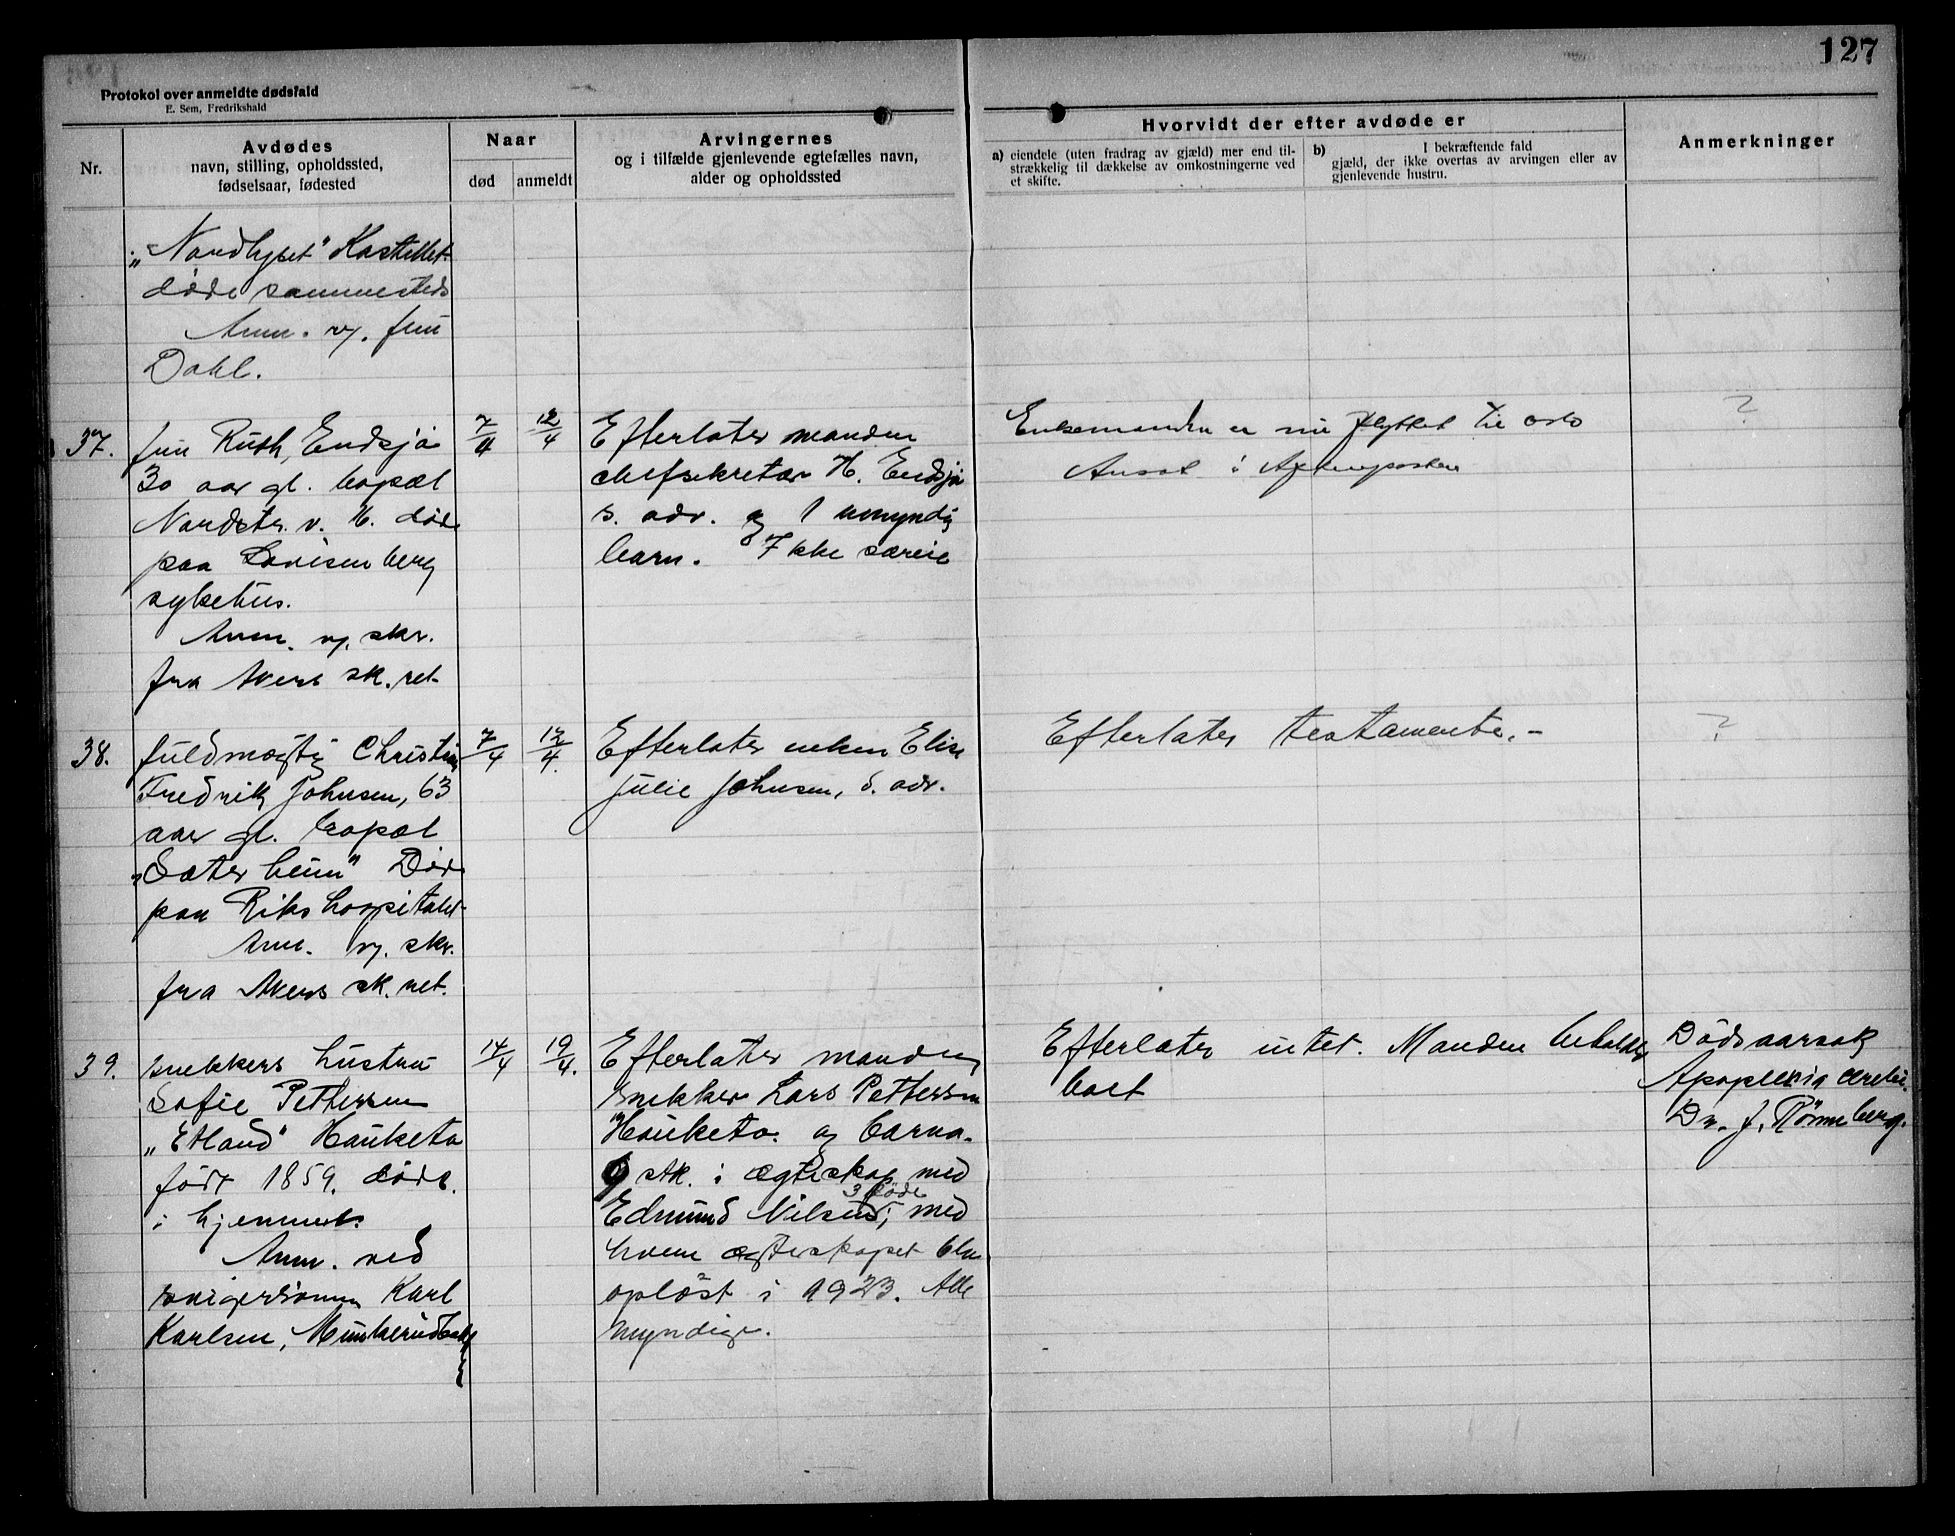 127
Protokol over anmeldte dødsfald
E. Sem, Fredrikshald
Nr.
Avdødes
navn, stilling, opholdssted,
fødselsaar, fødested
Naar
død
anmeldt
Arvingernes
og i tilfælde gjenlevende egtefælles navn,
alder og opholdssted
Hvorvidt der efter avdøde er
a) eiendele (uten fradrag av gjæld) mer end til-
strækkelig til dækkelse av omkostningerne ved
et skifte.
b) I bekræftende fald
gjæld, der ikke overtas av arvingen eller av
gjenlevende hustru.
Anmerkninger
"Nordlyset" Kastellet
døde sammesteds
Anm. v. fru
Dahl.
37.
fru Ruth Endsjø
30 aar gl. bopæl
Nordstr. v. 16. død
paa Lovisenberg
sykehus.
Anm. v. skr.
fra Akers sk. ret
7/4
12/4
Efterlater manden
chefsekretær H. Endsjø
s. adr. og 1 umyndig
barn. Ikke særeie
Enkemanden er nu flyttet til Oslo
Ansat i Aftenposten
?
38.
fuldmægtig Christian
Fredrik Johnsen, 63
aar gl. bopæl
"Sæterheim" Død
paa Rikshospitalet
Anm. v. skr.
fra Akers sk. ret.
7/4
12/4.
Efterlater enken Elise
Julie Johnsen, s. adr.
Efterlater testamente.-
?
39.
snekkers hustru
Sofie Pettersen
"Etland" Hauketo
født 1859. døde.
i hjemmet.
Anm. ved
svigersønnen Karl
Karlsen, Munkerud
14/4
19/4.
Efterlater manden
snekker Lars Pettersen
Hauketo. og barna.
9 stk. i ægteskap med
3 døde
Edmund Nilsen; med
hvem ægteskapet blev
opløst i 1923. Alle
myndige.
Efterlater intet. Manden beholder
boet
Dødsaarsak
Apoplexia cerebri.
Dr. J. Rønneberg.